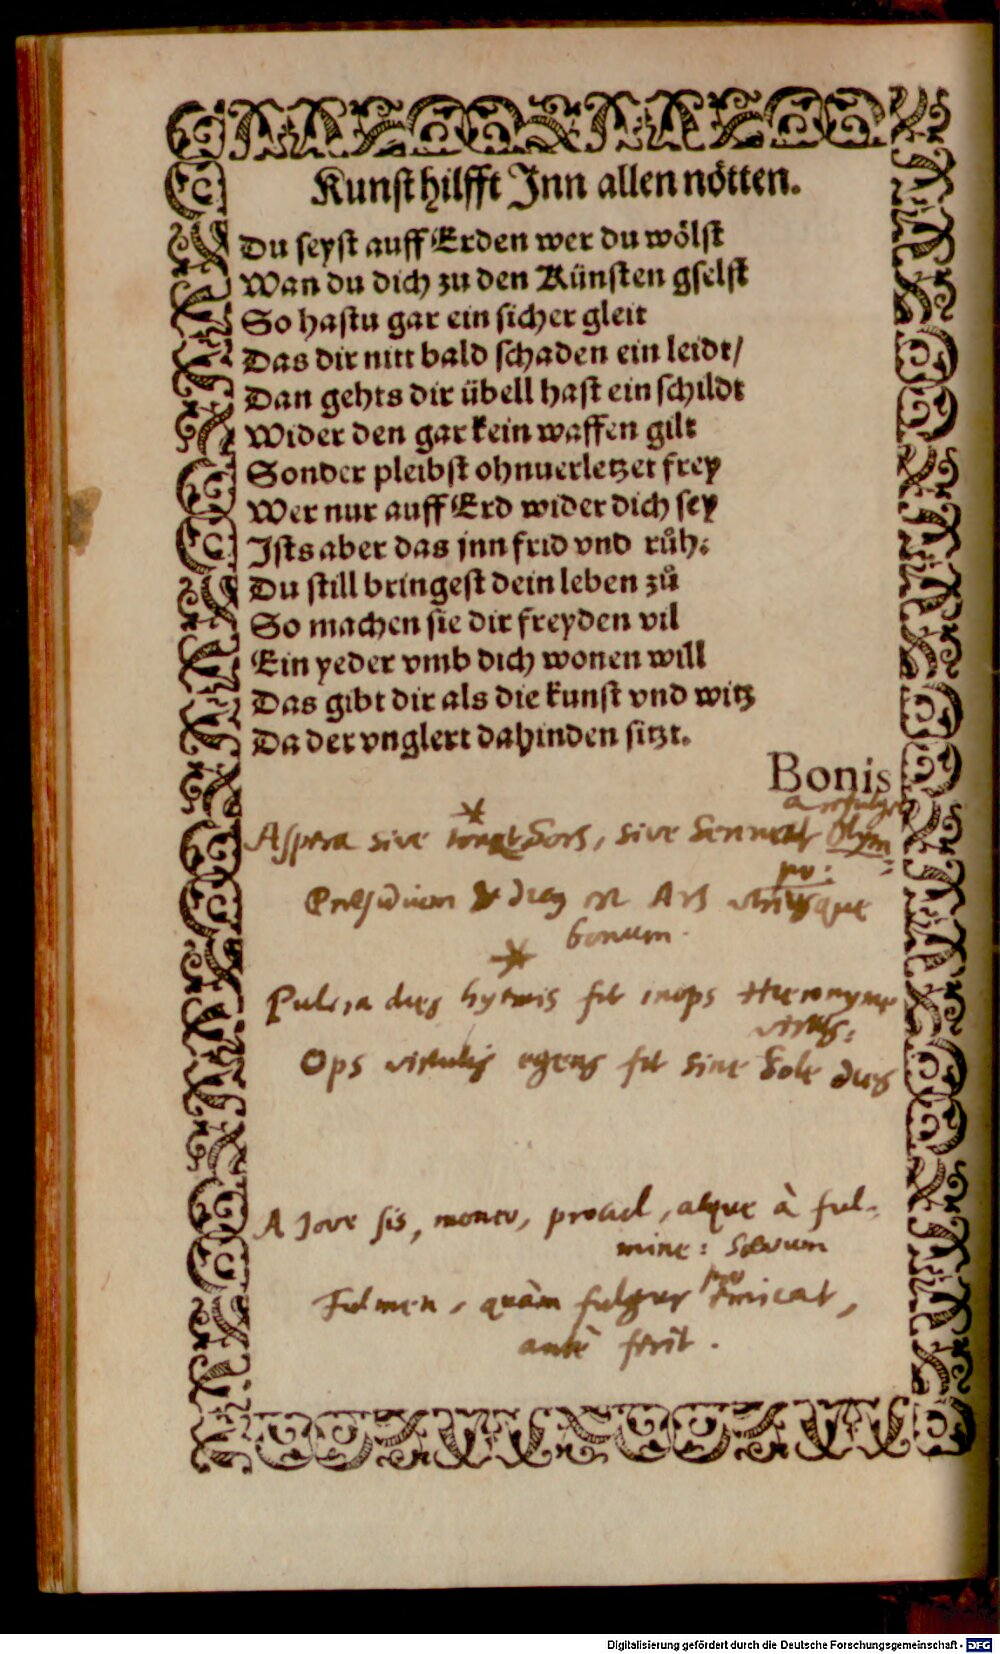 Kunst hilfft Jnn allen nötten.
Du seyst auff Erden wer du wölst
Wan du dich zu den Künsten gselst
So hastu gar ein sicher gleit
Das dir nitt bald schaden ein leidt/
Dan gehts dir übell hast ein schildt
Wider den gar kein waffen gilt
Sonder pleibst ohnuerletzet frey
Wer nur auff Erd wider dich sey
Jsts aber das jnn frid vnd růh:
Du still bringest dein leben zů
So machen sie dir freyden vil
Ein yeder vmb dich wonen will
Das gibt dir als die kunst vnd witz
Da der vnglert dahinden sitzt.
Bonis
Aspera sive Sors, sive
Præsidium est Ars
bonum.
dies hyemis fit inops
virtus:
Ops virtutis egens fit sine Sole dies
A Jove sis, moneo, procul, atque à ful-
mine: Sævum
Fulmen, quàm fulgur
antè ferit.
Digitalisierung gefördert durch die Deutsche Forschungsgemeinschaft - DFG